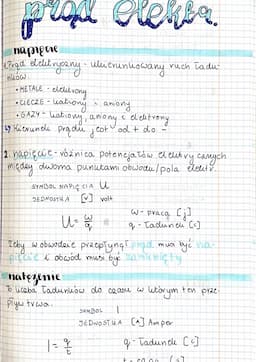 prąd elektr.
napięcie
1. Prąd elektryczny - ukierunkowany ruch ładu-
nków.
• METALE - elektrony
• CIECZE - kationy i aniony
• GAZY - kationy, aniony i elektrony
↳ Kierunek prądu jest od + do -
2. napięcie - różnica potencjałów elektrycznych
między dwoma punktami obwodu/pola elektr.
SYMBOL NAPIĘCIA U
JEDNOSTKA [V] volt
U = W/q
W - praca [J]
q - ładunek [C]
Żeby w obwodzie przepłynął prąd musi być na-
pięcie i obwód musi być zamknięty
natężenie
to liczba ładunków do czasu w którym ten prze-
pływ trwa.
SYMBOL I
JEDNOSTKA [A] Amper
I = q/t
q - ładunek [C]